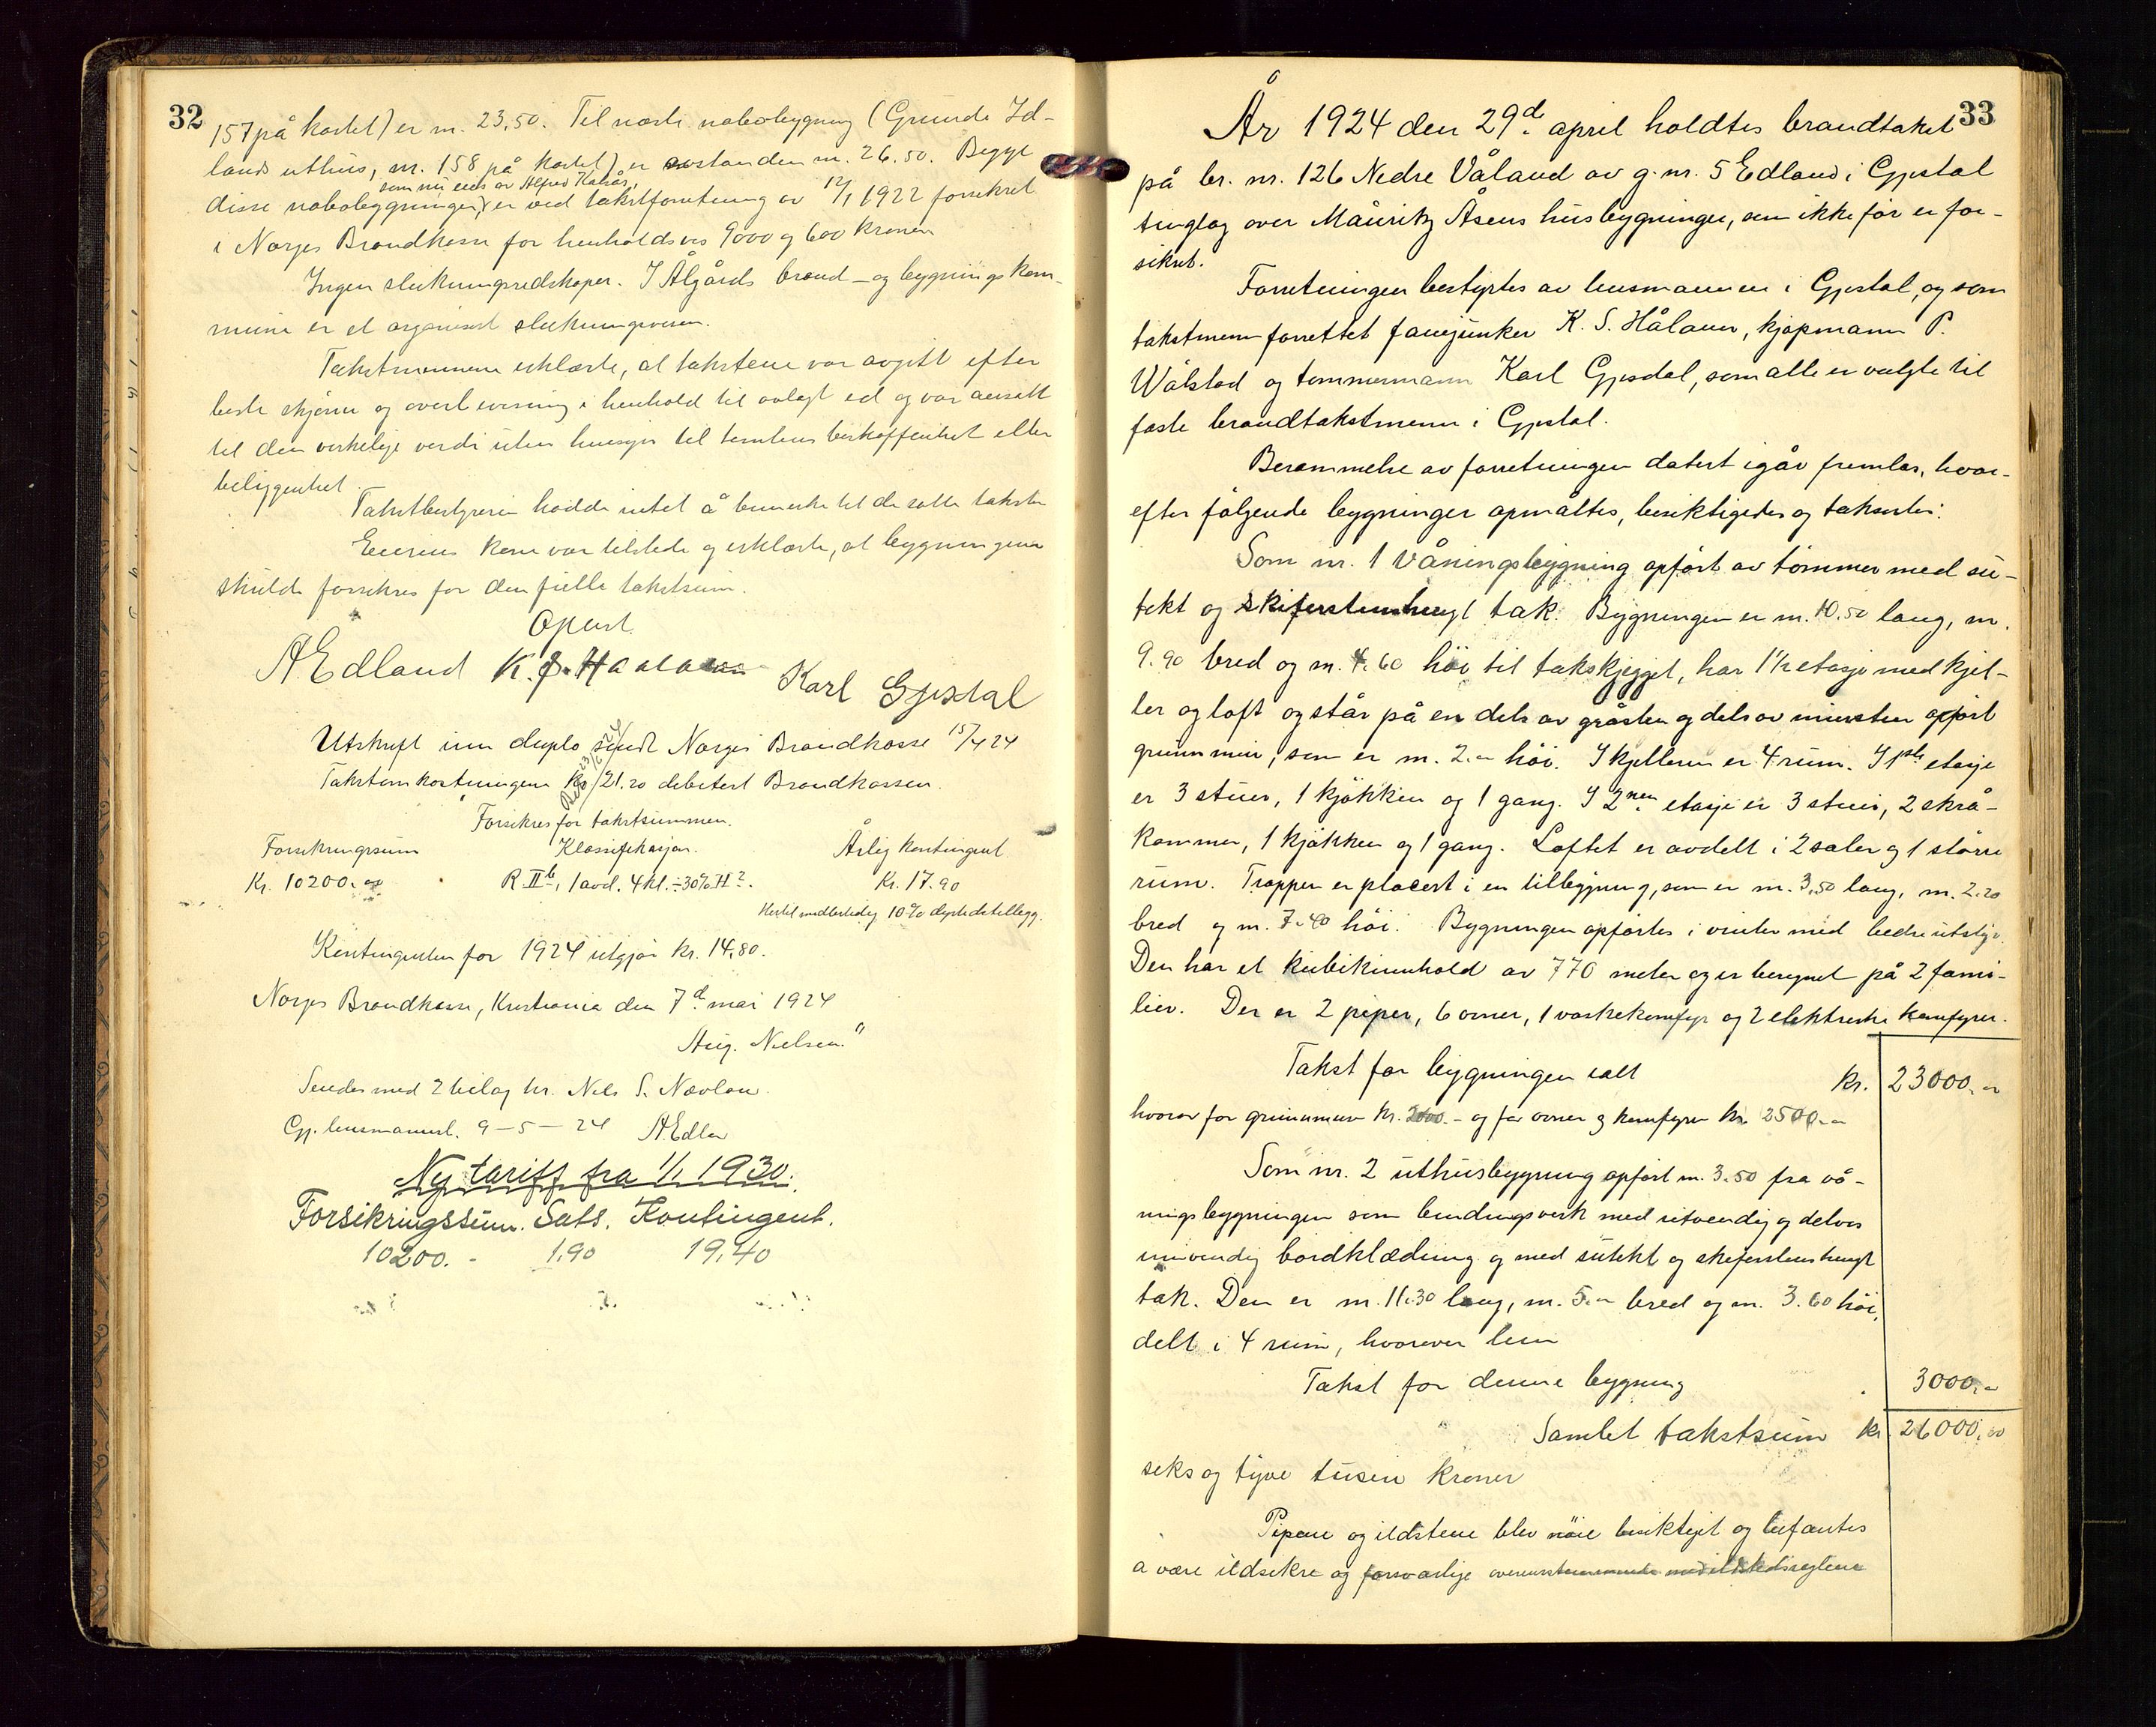 32
157 på kartet) er m. 23,50. Til næste nabobygning (Grunde Id-
lands uthus, nr. 158 på kartet) er avstanden m. 26.50. Begge
som nu eies av Alfred
disse nabobygninger, er ved takstforretning av 12/1 1922 forsikret
i Norges Brandkasse for henholdsvis 9000 og 600 kroner
Ingen slukningsredskaper. I Ålgårds brand- og bygningskom-
mune er et organisert slukningsvesen.
Takstmennene erklærte, at takstene var avgitt efter
beste skjønn og overbevisning i henhold til avlagt ed og var ansatt
til den virkelige verdi uten hensyn til tomtens beskaffenhet eller
beliggenhet.
Takstbestyreren hadde intet å bemerke til de satte takster
Eierens kone var tilstede og erklærte, at bygningene
skulde forsikres for den fulle takstsum.
Oplæst.
A Edland K. S. Haaland Karl Gjesdal
Utskrift inn duplo sendt Norges Brandkasse 15/4 24
Takstomkostningene kr. 21.20 debitert Brandkassen.
"Forsikres for takstsummen.
Forsikringssum Klassifikasjon. Årlig kontingent
Kr. 10200.00 R II b, 1 avd. 4 kl. ÷ 30% H2. Kr. 17.90
Hertil midlertidig 10% dyrtidstillegg.
Kontingenten for 1924 utgjør kr. 14.80.
Norges Brandkasse, Kristiania den 7de mai 1924
Aug. Nielsen."
Sendes med 2 bilag hr. Nils S. Nævlan
Gj. lensmannsk. 9-5-24 A Edla
Ny tariff fra 1/1 1930.
Forsikringssum. Sats. Kontingent.
10200.- 1,90 19,40
33
År 1924 den 29de april holdtes brandtakst
på br. nr. 126 Nedre Våland av g. nr. 5 Edland i Gjestal
tinglag over Mauritz Åsens husbygninger, som ikke før er for-
sikret.
Forretningen bestyrtes av lensmannen i Gjestal, og som
takstmenn forrettet fanejunker K. S. Håland, kjøpmann P.
Wålstad og tømmermann Karl Gjesdal, som alle er valgte til
faste brandtakstmenn i Gjestal.
Berammelse av forretningen datert igår fremlas, hvor-
efter følgende bygninger opmåltes, besiktigedes og takserte:
Som nr. 1 Våningsbygning opført av tømmer med su-
tekt og skiferstenhengt tak. Bygningen er m. 10.50 lang, m.
9.90 bred og m. 4.60 høi til takskjegget, har 1½ etasje med kjel-
ler og loft og står på en dels av gråsten og dels av mursten opført
grunnmur, som er m. 2.00 høi. I kjelleren er 4 rum. I 1ste etasje
er 3 stuer, 1 kjøkken og 1 gang. I 2nen etasje er 3 stuer, 2 skrå-
kammer, 1 kjøkken og 1 gang. Loftet er avdelt i 2 saler og 1 større
rum. Trappen er placert i en tilbygning, som er m. 3,50 lang, m. 2.20
bred og m. 7.40 høi. Bygningen opførtes i vinter med bedre utstyr.
Den har et kubikinnhold av 770 meter og er beregnet på 2 fami-
lier. Der er 2 piper, 6 ovner, 1 vaskekomfyr og 2 elektriske komfyrer.
Takst for bygningen ialt kr. 23000.00
hvorav for grunnmuren kr. 2000.- og for ovner og komfyrer kr. 2500.00
Som nr. 2 uthusbygning opført m. 3.50 fra vå-
ningsbygningen som bindingsverk med utvendig og delvis
innvendig bordklædning og med sutekt og skiferstenshengt
tak. Den er m. 11.30 lang, m. 5.00 bred og m. 3.60 høi,
delt i 4 rum, hvorover lem
Takst for denne bygning 3000.00
Samlet takstsum kr. 26000.00
seks og tyve tusen kroner
Pipene og ildstene blev nøie besiktiget og befantes
a være ildsikre og forsvarlige overensstemmende med ildstedsreglene